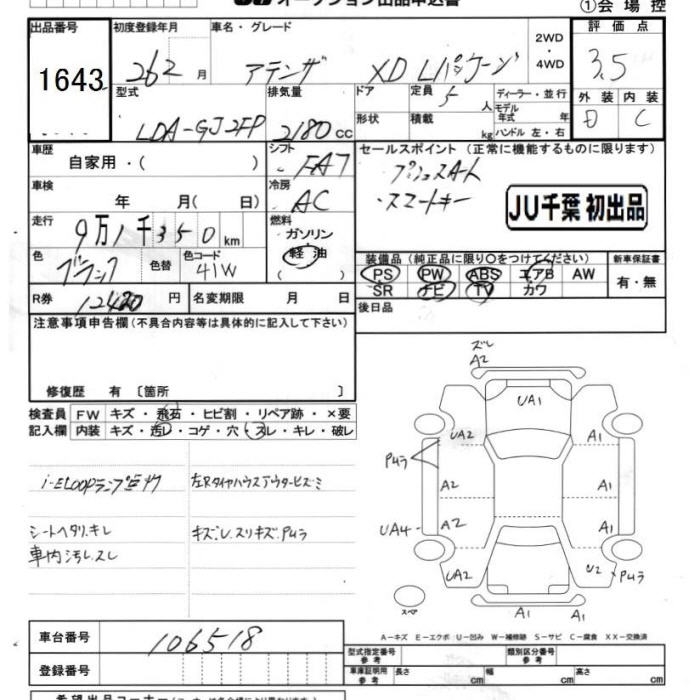 オークション出品申込書
①会場控
出品番号
1643
初度登録年月
26 2 月
車名・グレード
アテンザ XD Lパッケージ
2WD
・
4WD
評価点
3.5
外装 内装
D C
型式
LDA-GJ2FP
排気量
2180 cc
ドア
形状
定員 5 人
積載 kg
ディーラー・並行
モデル年式 年
ハンドル 左・右
車歴
自家用・( )
シフト
FA7
車検
年 月( 日)
冷房
AC
走行
9万1千350 km
燃料
ガソリン
軽油
( )
色
ブラック
色替
色コード
41W
R券
12420 円
名変期限 月 日
セールスポイント (正常に機能するものに限ります)
・プッシュスタート
・スマートキー
JU千葉 初出品
装備品(純正品に限り○をつけてください)
PS PW ABS エアB AW
SR ナビ TV カワ
新車保証書
有・無
後日品
注意事項申告欄(不具合内容等は具体的に記入して下さい)
修復歴 有〔箇所 〕
検査員
記入欄
FW キズ・飛石・ヒビ割・リペア跡・×要
内装 キズ・汚レ・コゲ・穴・スレ・キレ・破レ
i-ELOOPランプ点灯
左Rタイヤハウスアウターヒズミ
シートヘタリ.キレ
車内汚レ.スレ
キズ.U.スリキズ.Pムラ
ズレ
A2
UA1
UA2 A1
Pムラ
A2 A1
UA4
A2 A1
UA2 U2
Pムラ
A1 A1
スペア
A-キズ E-エクボ U-凹み W-補修跡 S-サビ C-腐食 XX-交換済
車台番号
106518
登録番号
型式指定番号
参考
類別区分番号
参考
車庫証明用
参考
長さ cm
幅 cm
高さ cm
希望出品コーナー